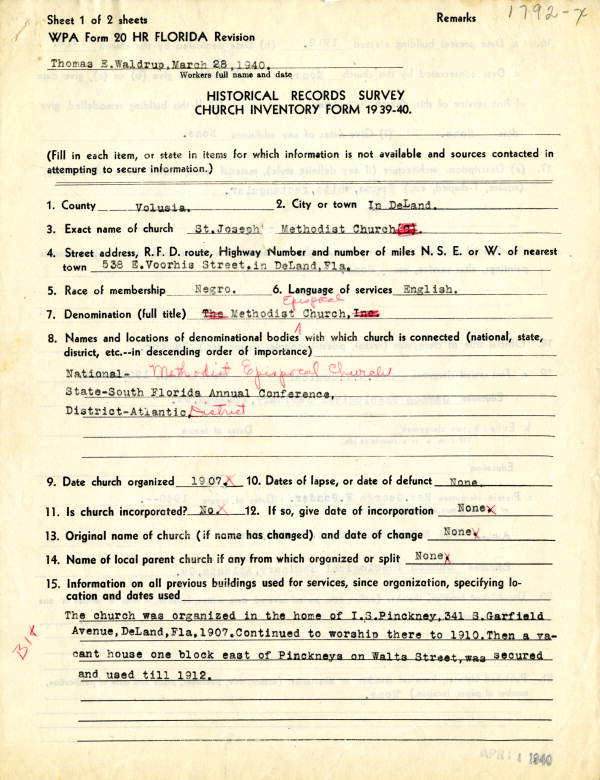 Sheet 1 of 2 sheets Remarks 1792-x
WPA Form 20 HR FLORIDA Revision
Thomas E.Waldrup,March 28,1940.
Workers full name and date
HISTORICAL RECORDS SURVEY
CHURCH INVENTORY FORM 1939-40.
(Fill in each item, or state in items for which information is not available and sources contacted in
attempting to secure information.)
1. County Volusia. 2. City or town In DeLand.
3. Exact name of church St.Joseph Methodist Church
4. Street address, R. F. D. route, Highway Number and number of miles N. S. E. or W. of nearest
town 538 E.Voorhis Street.in DeLand,Fla.
5. Race of membership Negro. 6. Language of services English.
Episcopal
7. Denomination (full title) The Methodist Church, Inc.
8. Names and locations of denominational bodies with which church is connected (national, state,
district, etc.--in descending order of importance)
National- Methodist Episcopal Church
State-South Florida Annual Conference,
District-Atlantic District
9. Date church organized 1907.x 10. Dates of lapse, or date of defunct None.
11. Is church incorporated? No.x 12. If so, give date of incorporation None.x
13. Original name of church (if name has changed) and date of change None.x
14. Name of local parent church if any from which organized or split None.x
15. Information on all previous buildings used for services, since organization, specifying lo-
cation and dates used
The church was organized in the home of I.S.Pinckney,341 S.Garfield
Avenue,DeLand,Fla,1907.Continued to worship there to 1910.Then a va-
cant house one block east of Pinckneys on Walts Street,was secured
and used till 1912.
APR 1940